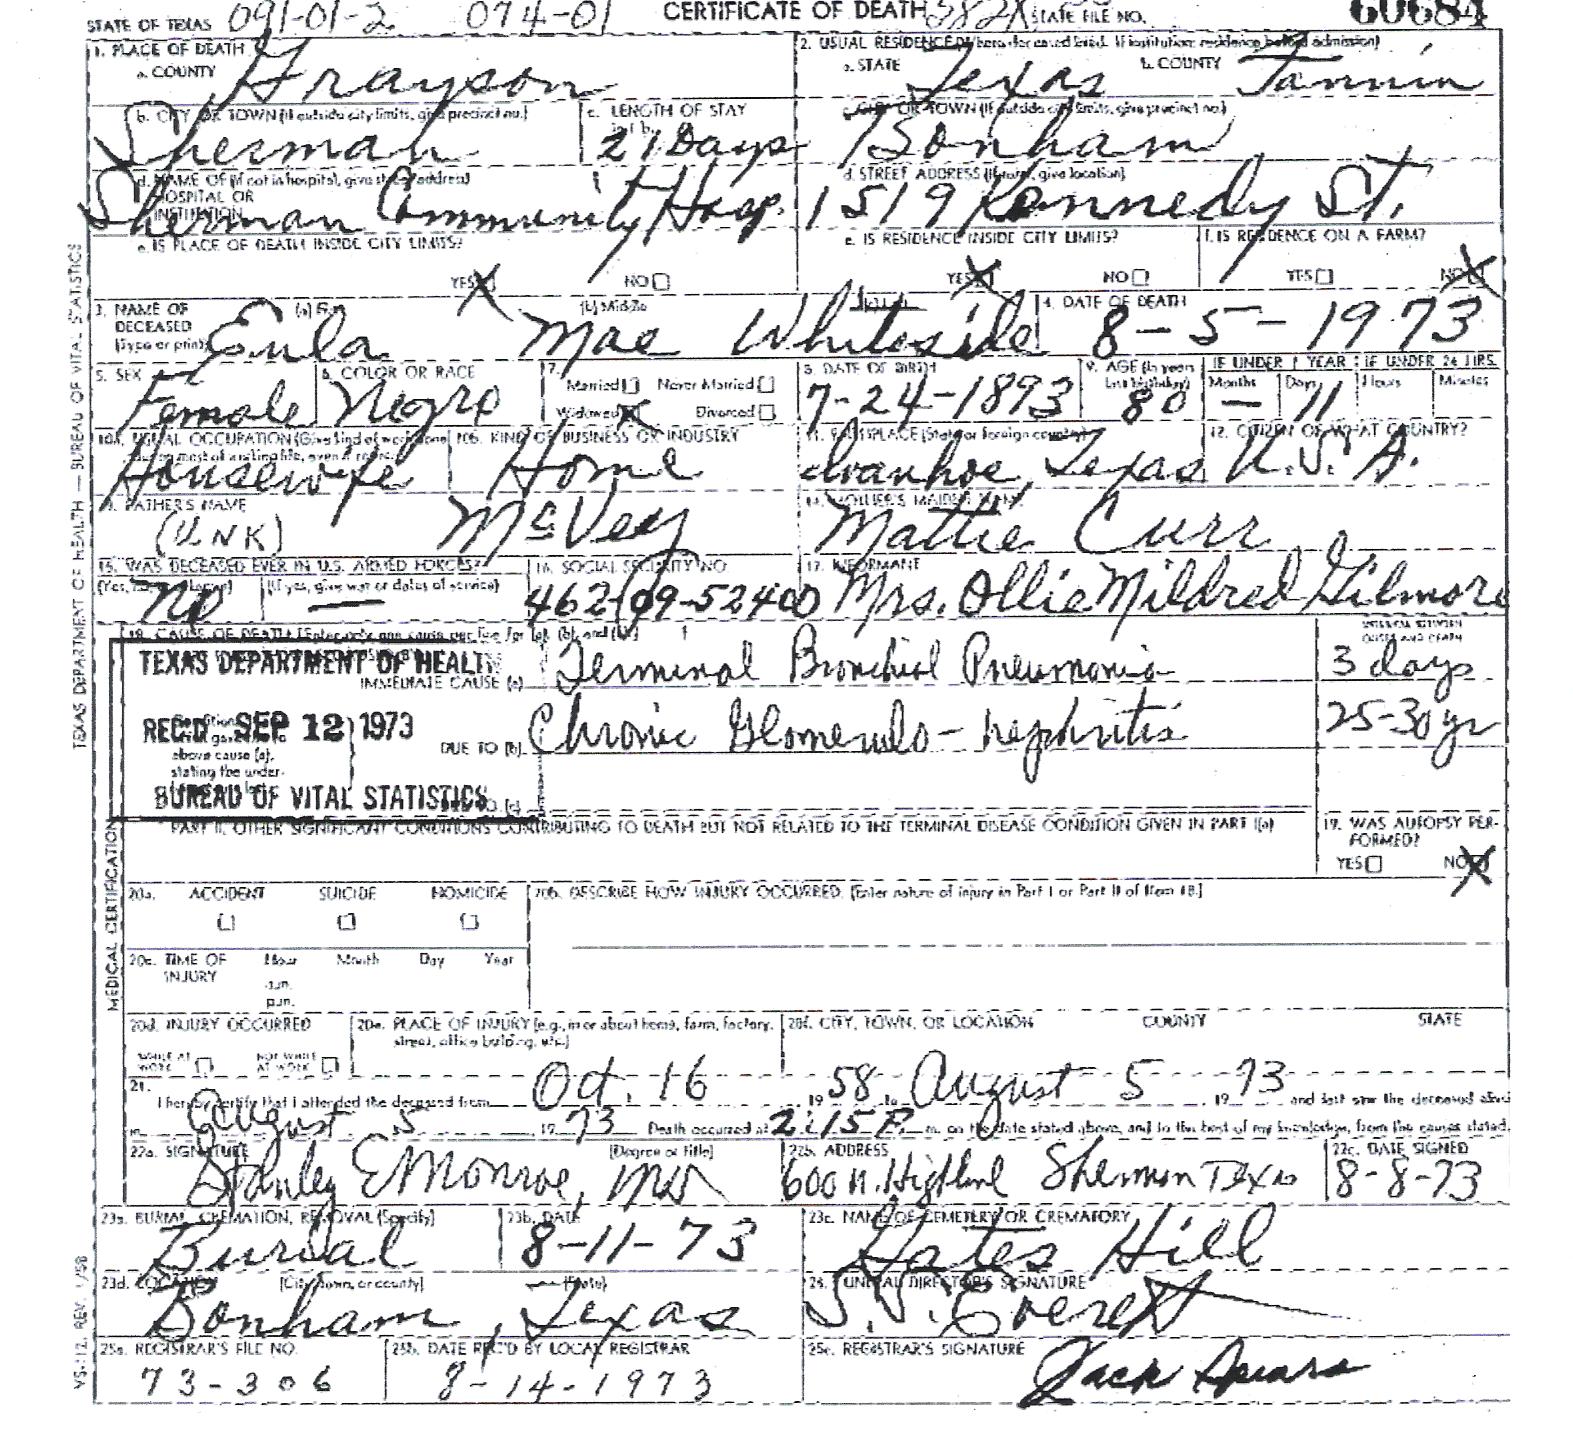 STATE OF TEXAS 091-01-2 074-01 CERTIFICATE OF DEATH 582X STATE FILE NO. 60684
1. PLACE OF DEATH
a. COUNTY Grayson
2. USUAL RESIDENCE (Where deceased lived. If institution: residence before admission)
a. STATE Texas b. COUNTY Fannin
b. CITY OR TOWN (If outside city limits, give precinct no.) Sherman
c. LENGTH OF STAY in 1 b. 21 Days
c. CITY OR TOWN (If outside city limits, give precinct no.) Bonham
d. NAME OF (If not in hospital, give street address) HOSPITAL OR INSTITUTION Sherman Community Hosp.
d. STREET ADDRESS (If rural, give location) 1519 Kennedy St.
e. IS PLACE OF DEATH INSIDE CITY LIMITS?
YES X NO
e. IS RESIDENCE INSIDE CITY LIMITS?
YES X NO
f. IS RESIDENCE ON A FARM?
YES NO X
3. NAME OF DECEASED (Type or print) (a) First Eula (b) Middle Mae (c) Last Whiteside
4. DATE OF DEATH 8-5-1973
5. SEX Female
6. COLOR OR RACE Negro
7. Married Never Married
Widowed X Divorced
8. DATE OF BIRTH 7-24-1893
9. AGE (In years last birthday) 80
IF UNDER 1 YEAR Months — Days 11
IF UNDER 24 HRS. Hours Minutes
10a. USUAL OCCUPATION (Give kind of work done during most of working life, even if retired) Housewife
10b. KIND OF BUSINESS OR INDUSTRY Home
11. BIRTHPLACE (State or foreign country) Ivanhoe, Texas
12. CITIZEN OF WHAT COUNTRY? U.S.A.
13. FATHER'S NAME (UNK) McVey
14. MOTHER'S MAIDEN NAME Mattie Curr
15. WAS DECEASED EVER IN U.S. ARMED FORCES?
(Yes, no, or unknown) No (If yes, give war or dates of service) —
16. SOCIAL SECURITY NO.
17. INFORMANT Mrs. Ollie Mildred Gilmore
18. CAUSE OF DEATH [Enter only one cause per line for (a), (b), and (c)]
INTERVAL BETWEEN ONSET AND DEATH
TEXAS DEPARTMENT OF HEALTH
IMMEDIATE CAUSE (a) Terminal Bronchial Pneumonia 3 days
REC'D SEP 12 1973
above cause (a), stating the under-
DUE TO (b) Chronic Glomerulo-nephritis 25-30 yr
BUREAU OF VITAL STATISTICS
PART II. OTHER SIGNIFICANT CONDITIONS CONTRIBUTING TO DEATH BUT NOT RELATED TO THE TERMINAL DISEASE CONDITION GIVEN IN PART I(a)
19. WAS AUTOPSY PERFORMED?
YES NO X
20a. ACCIDENT SUICIDE HOMICIDE
20b. DESCRIBE HOW INJURY OCCURRED. (Enter nature of injury in Part I or Part II of Item 18.)
20c. TIME OF INJURY Hour Month Day Year
a.m.
p.m.
20d. INJURY OCCURRED
WHILE AT WORK NOT WHILE AT WORK
20e. PLACE OF INJURY (e.g., in or about home, farm, factory, street, office building, etc.)
20f. CITY, TOWN, OR LOCATION COUNTY STATE
21. I hereby certify that I attended the deceased from Oct. 16 1958 to August 5 1973 and last saw the deceased alive
on August 5 1973 Death occurred at 2:15 P. m. on the date stated above, and to the best of my knowledge, from the causes stated.
22a. SIGNATURE (Degree or title) Stanley E Monroe, MD
22b. ADDRESS 600 N. Highland Sherman Texas
22c. DATE SIGNED 8-8-73
23a. BURIAL, CREMATION, REMOVAL (Specify) Burial
23b. DATE 8-11-73
23c. NAME OF CEMETERY OR CREMATORY Gates Hill
23d. LOCATION (City, town, or county) (State) Bonham, Texas
24. FUNERAL DIRECTOR'S SIGNATURE Everett
25a. REGISTRAR'S FILE NO. 73-306
25b. DATE REC'D BY LOCAL REGISTRAR 8-14-1973
25c. REGISTRAR'S SIGNATURE Jack
TEXAS DEPARTMENT OF HEALTH — BUREAU OF VITAL STATISTICS
MEDICAL CERTIFICATION
VS-112, REV. 1/58